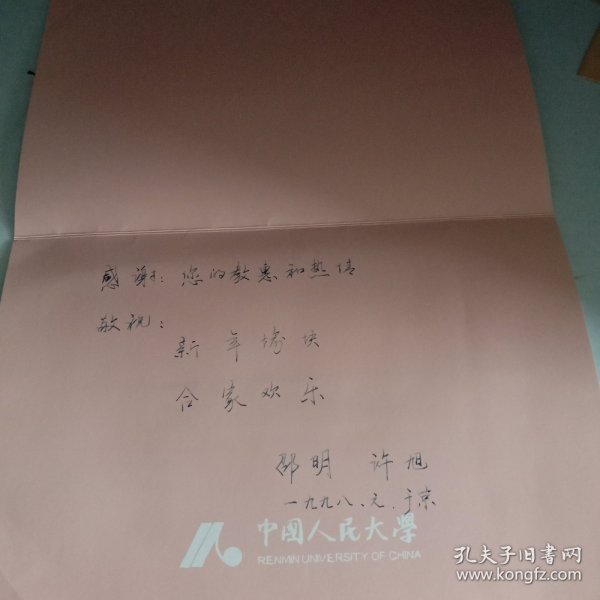 感谢：您的教惠和热情
敬祝：
新年愉快
合家欢乐
邵明 许旭
一九九八、元、于京
中国人民大學
RENMIN UNIVERSITY OF CHINA
孔夫子旧书网
www.kongfz.com